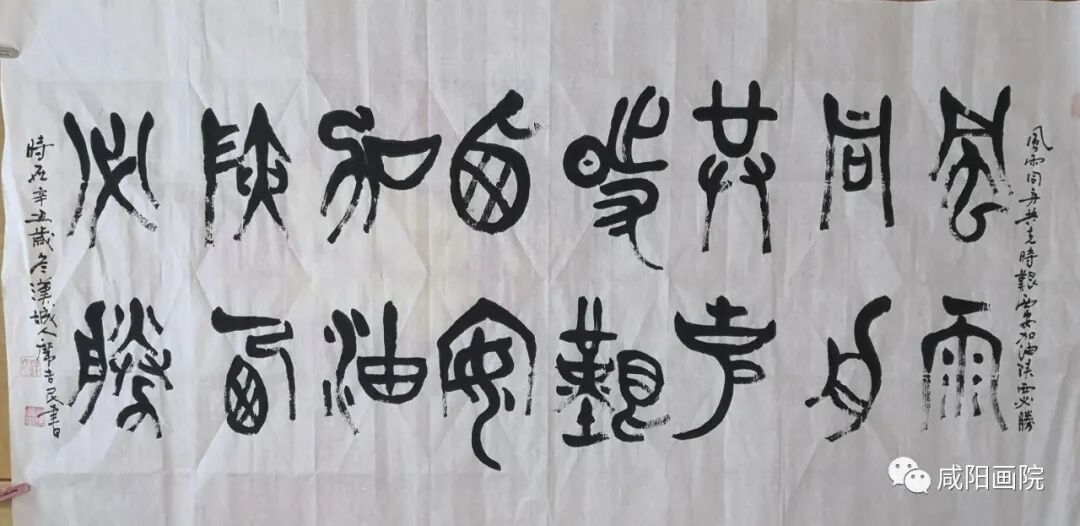 風雨同舟共克時艱西安加油陝西必勝
風雨
同舟
共克
時艱
西安
加油
陝西
必勝
時在辛丑歲冬漢城人席吉民書
咸阳画院